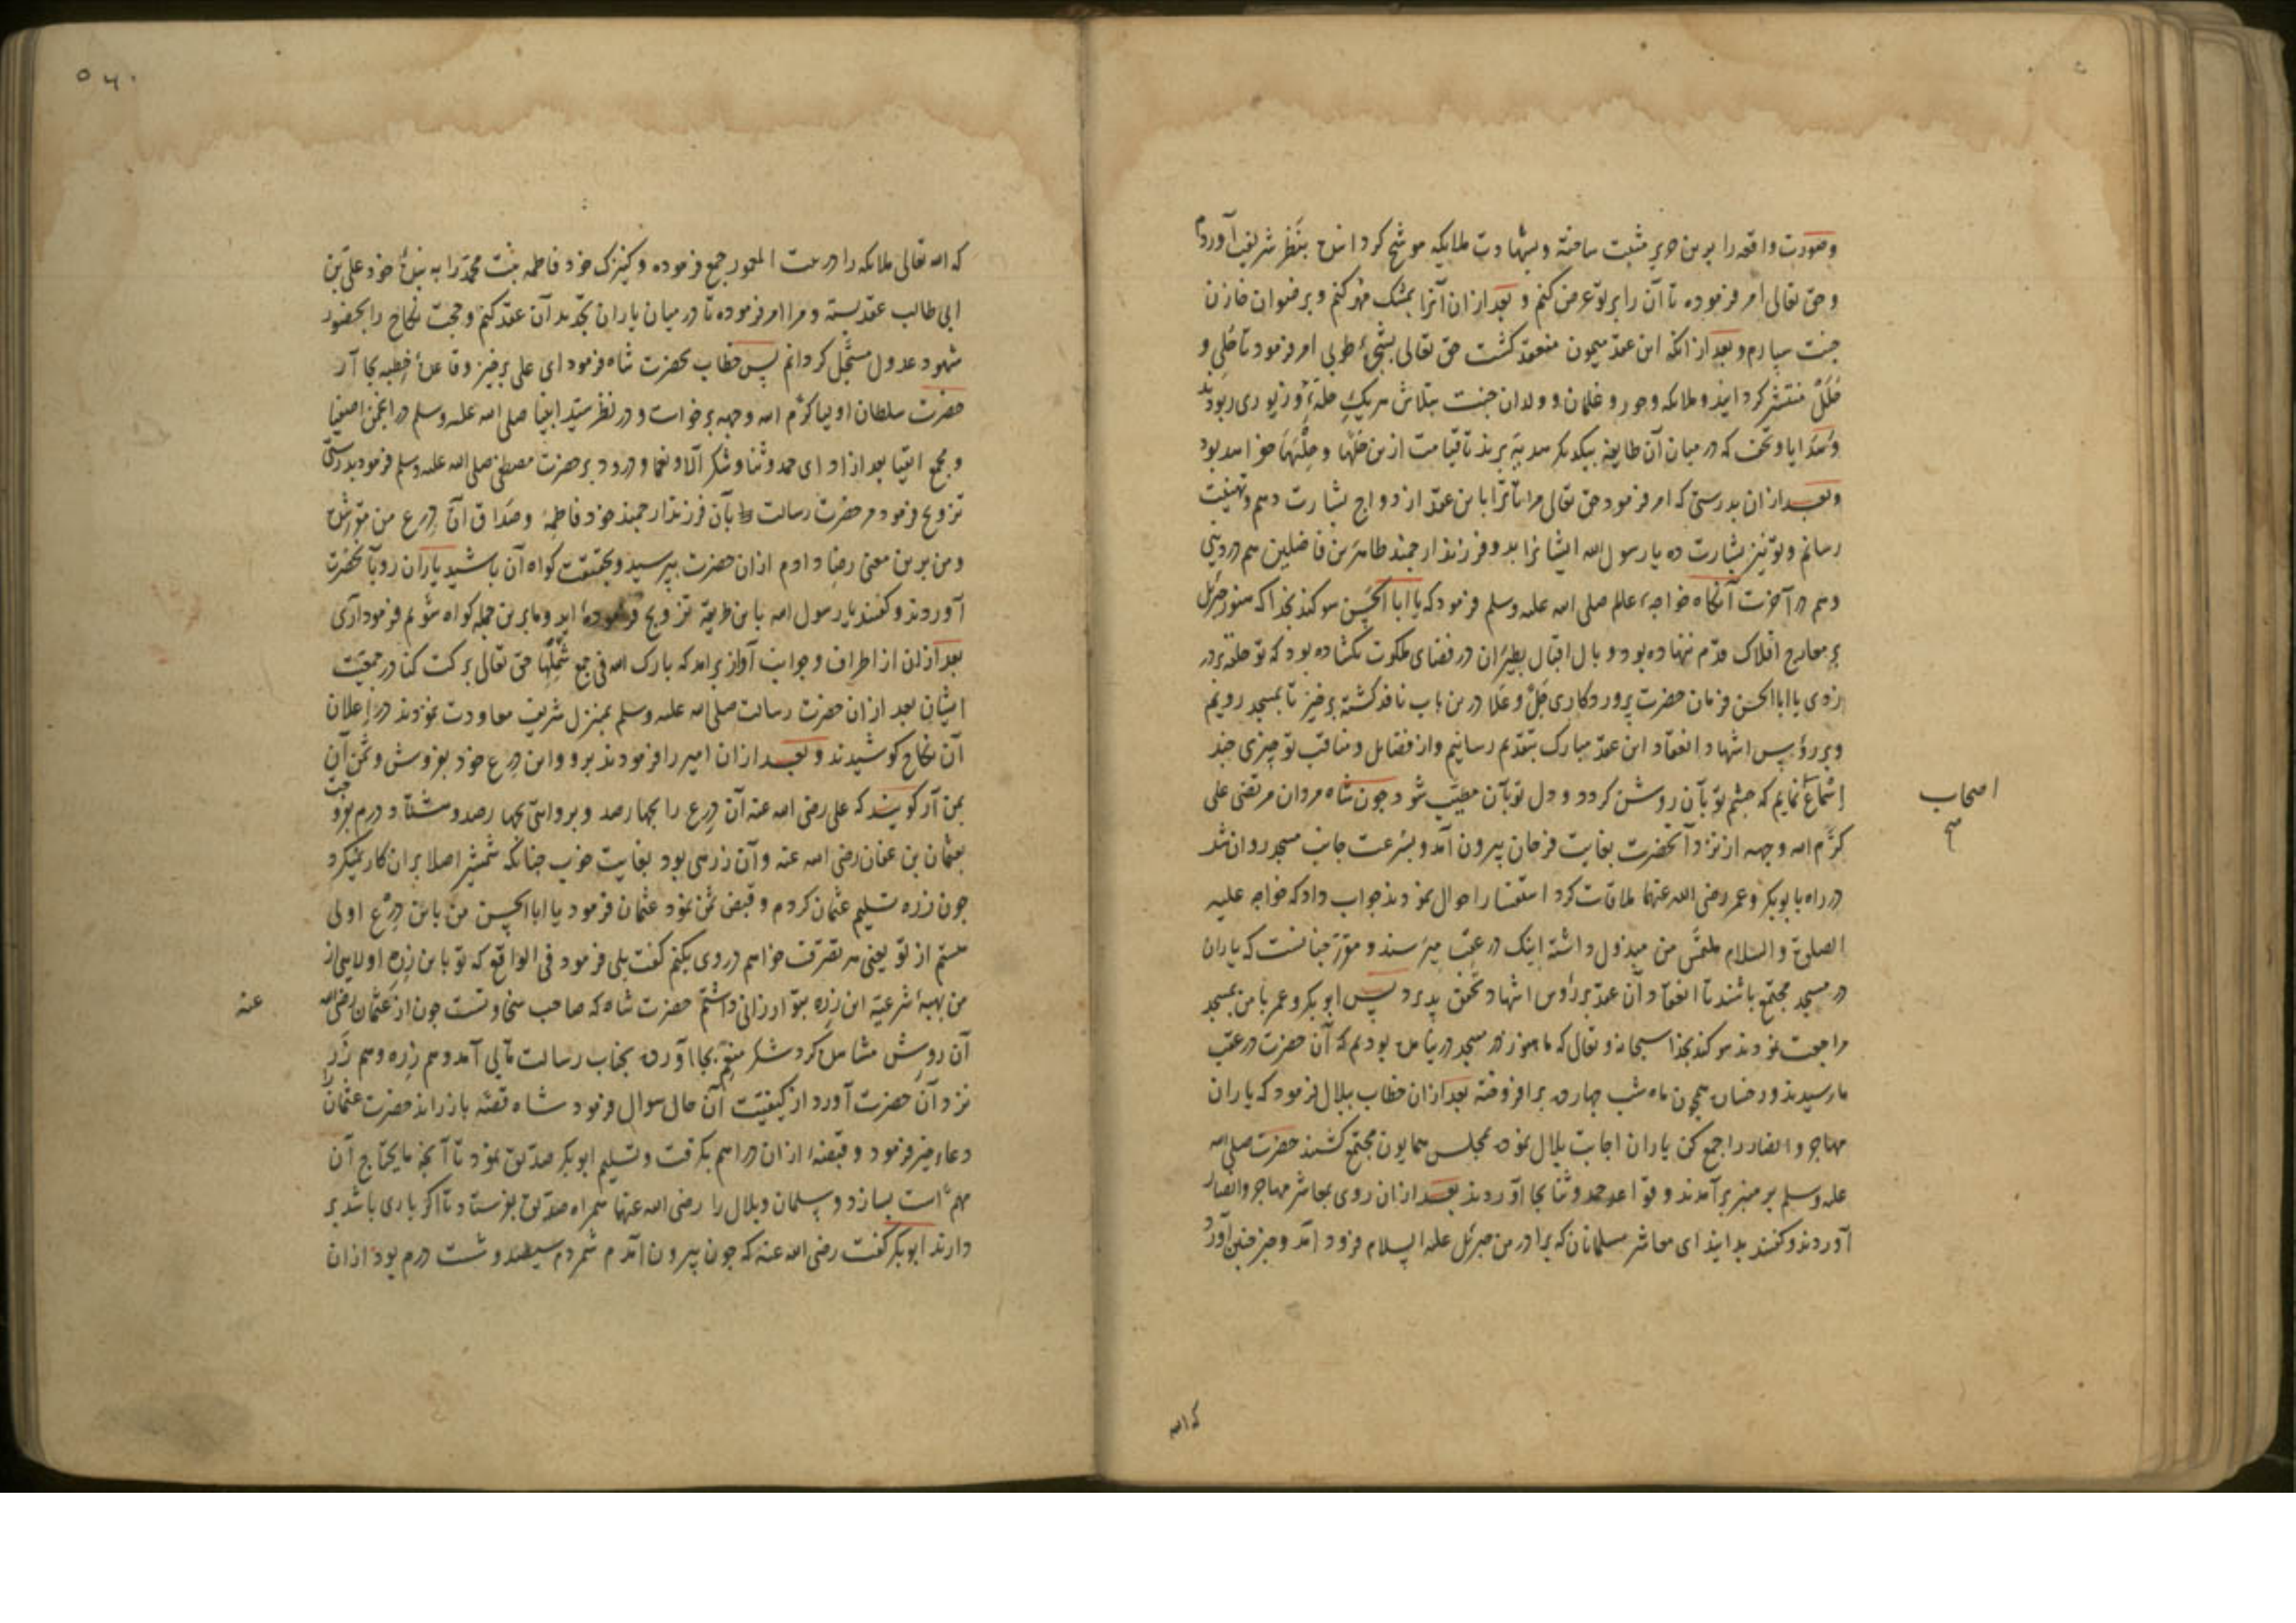 وصورت واقعه را برین حریر مثبت ساخته وبشهادت ملایکه موشح کردانیده بنظر شریف آوردم
و حق تعالی امر فرموده تا آن را بر تو عرض کنم و بعد ازان آنرا بمشک مهر کنم و برضوان خازن
جنت سپارم و بعد از انکه این عقد میمون منعقد کشت حق تعالی بشجرهٔ طوبی امر فرمود تا حُلی و
حُلَل منتشر کردانید و ملایکه و حور و غلمان و ولدان جنت بتلاش هریک حله و زیوری ربودند
و هدایا و تحف که در میان آن طایفه بیکدیکر هدیه برند تا قیامت ازین حلها و حلیها خواهد بود
و بعد ازان بدرستی که امر فرمود حق تعالی مرا تا ترا باین عقد ازدواج بشارت دهم و تهنیت
رسانم و تو نیز بشارت ده یا رسول الله ایشانرا بدو فرزند ارجمند طاهرین فاضلین هم در دنیی
و هم در آخرت آنکاه خواجهٔ عالم صلی الله علیه وسلم فرمود که یا ابا الحسن سوکند بخدا که هنوز جبرئیل
بر معارج افلاک قدم ننهاده بود و بال اقبال بطیران در فضای ملکوت نکشاده بود که تو حلقه بر در
زدی یا ابا الحسن فرمان حضرت پروردکاری جل و علا درین باب نافذ کشته برخیز تا بمسجد رویم
و بر رؤس اشهاد انعقاد این عقد مبارک بتقدیم رسانیم و از فضایل و مناقب تو چیزی چند
اِسْماع نمایم که چشم تو بآن روشن کردد و دل تو بآن مطیب شود چون شاه مردان مرتضی علی
اصحاب
صح
کرم الله وجهه از نزد آنحضرت بغایت فرحان بیرون آمد و بسرعت جانب مسجد روان شد
در راه با بوبکر و عمر رضی الله عنهما ملاقات کرد استفسار احوال نمودند جواب داد که خواجه علیه
الصلوة والسلام ملتمس من مبذول داشته اینک در عقب میرسند و مقرر چنانست که یاران
در مسجد مجتمع باشند تا انعقاد آن عقد برؤس اشهاد تحقق پذیرد پس ابو بکر و عمر با من بمسجد
مراجعت نمودند سوکند بخدا سبحانه و تعالی که ما هنوز در مسجد در نیامده بودیم که آن حضرت در عقب
ما رسیدند و رخسار همچون ماه شب چهارده برافروخته بعد ازان خطاب ببلال فرمود که یاران
مهاجر و انصار را جمع کن یاران اجابت بلال نموده بمجلس همایون مجتمع کشتند حضرت صلی الله
علیه وسلم بر منبر برآمدند و قواعد حمد و ثنا بجا آوردند بعد ازان روی بمعاشر مهاجر و انصار
آوردند و کفتند بدانید ای معاشر مسلمانان که برادر من جبرئیل علیه السلام فرود آمد و خبر چنین آورد
که الله
۵۶۰
که الله تعالی ملایکه را در بیت المعمور جمع فرموده و کنیزک خود فاطمه بنت محمد را به بندهٔ خود علی بن
ابی طالب عقد بسته و مرا امر فرموده تا در میان یاران تجدید آن عقد کنم و حجت نکاح را بحضور
شهود عدول مسجل کردانم پس خطاب بحضرت شاه فرمود ای علی برخیز و قاعدهٔ خطبه بجا آر
حضرت سلطان اولیا کرم الله وجهه برخواست و در نظر سید انبیا صلی الله علیه وسلم در انجمن اصفیا
و مجمع اتقیا بعد از ادای حمد و ثنا و شکر آلا و نعما و درود بر حضرت مصطفی صلی الله علیه وسلم فرمود بدرستی
تزویج فرمود مر حضرت رسالت بآن فرزند ارجمند خود فاطمه و صداق آن درع من مقرر شده
و من برین معنی رضا دادم ازان حضرت بپرسید و بحقیقت کواه آن باشید یاران رو بآنحضرت
آوردند و کفتند یا رسول الله باین طریقه تزویج فرموده اید و ما برین جمله کواه شویم فرمود آری
بعد ازان از اطراف و جوانب آواز برآمد که بارک الله فی جمع شملهما حق تعالی برکت کناد در جمعیت
ایشان بعد ازان حضرت رسالت صلی الله علیه وسلم بمنزل شریف معاودت نمودند در اعلان
آن نکاح کوشیدند و بعد ازان امیر را فرمودند برو و این درع خود بفروش و ثمن آن
بمن آر کویند که علی رضی الله عنه آن درع را بچهارصد و بروایتی بچهارصد و هشتاد درم بفروخت
بعثمان بن عفان رضی الله عنه و آن زرهی بود بغایت خوب چنانکه شمشیر اصلا بران کار نمیکرد
چون زره تسلیم عثمان کردم و قبض ثمن نمود عثمان فرمود یا ابا الحسن من باین درع اولی
هستم از تو یعنی هر تصرف خواهم در وی بکنم کفت بلی فرمود فی الواقع که تو باین زره اولایی از
من بهبهٔ شرعیه این زره بتو ارزانی داشتم حضرت شاه که صاحب سخاوتست چون از عثمان رضی الله
عنه
آن روش مشاهده کرد شکر منعم بجا آورده بجناب رسالت مآبی آمد و هم زره و هم زر
نزد آن حضرت آورد از کیفیت آن حال سوال فرمود شاه قصه باز راند حضرت عثمانرا
دعاء خیر فرمود و قبضهٔ ازان دراهم بکرفت و تسلیم ابوبکر صدیق نمود تا آنچه مایحتاج آن
مهم است بسازد و سلمان و بلال را رضی الله عنهما همراه صدیق بفرستاد تا اکر باری باشد بر
دارند ابوبکر کفت رضی الله عنه که چون بیرون آمدم شمردم سیصد و شست درم بود ازان